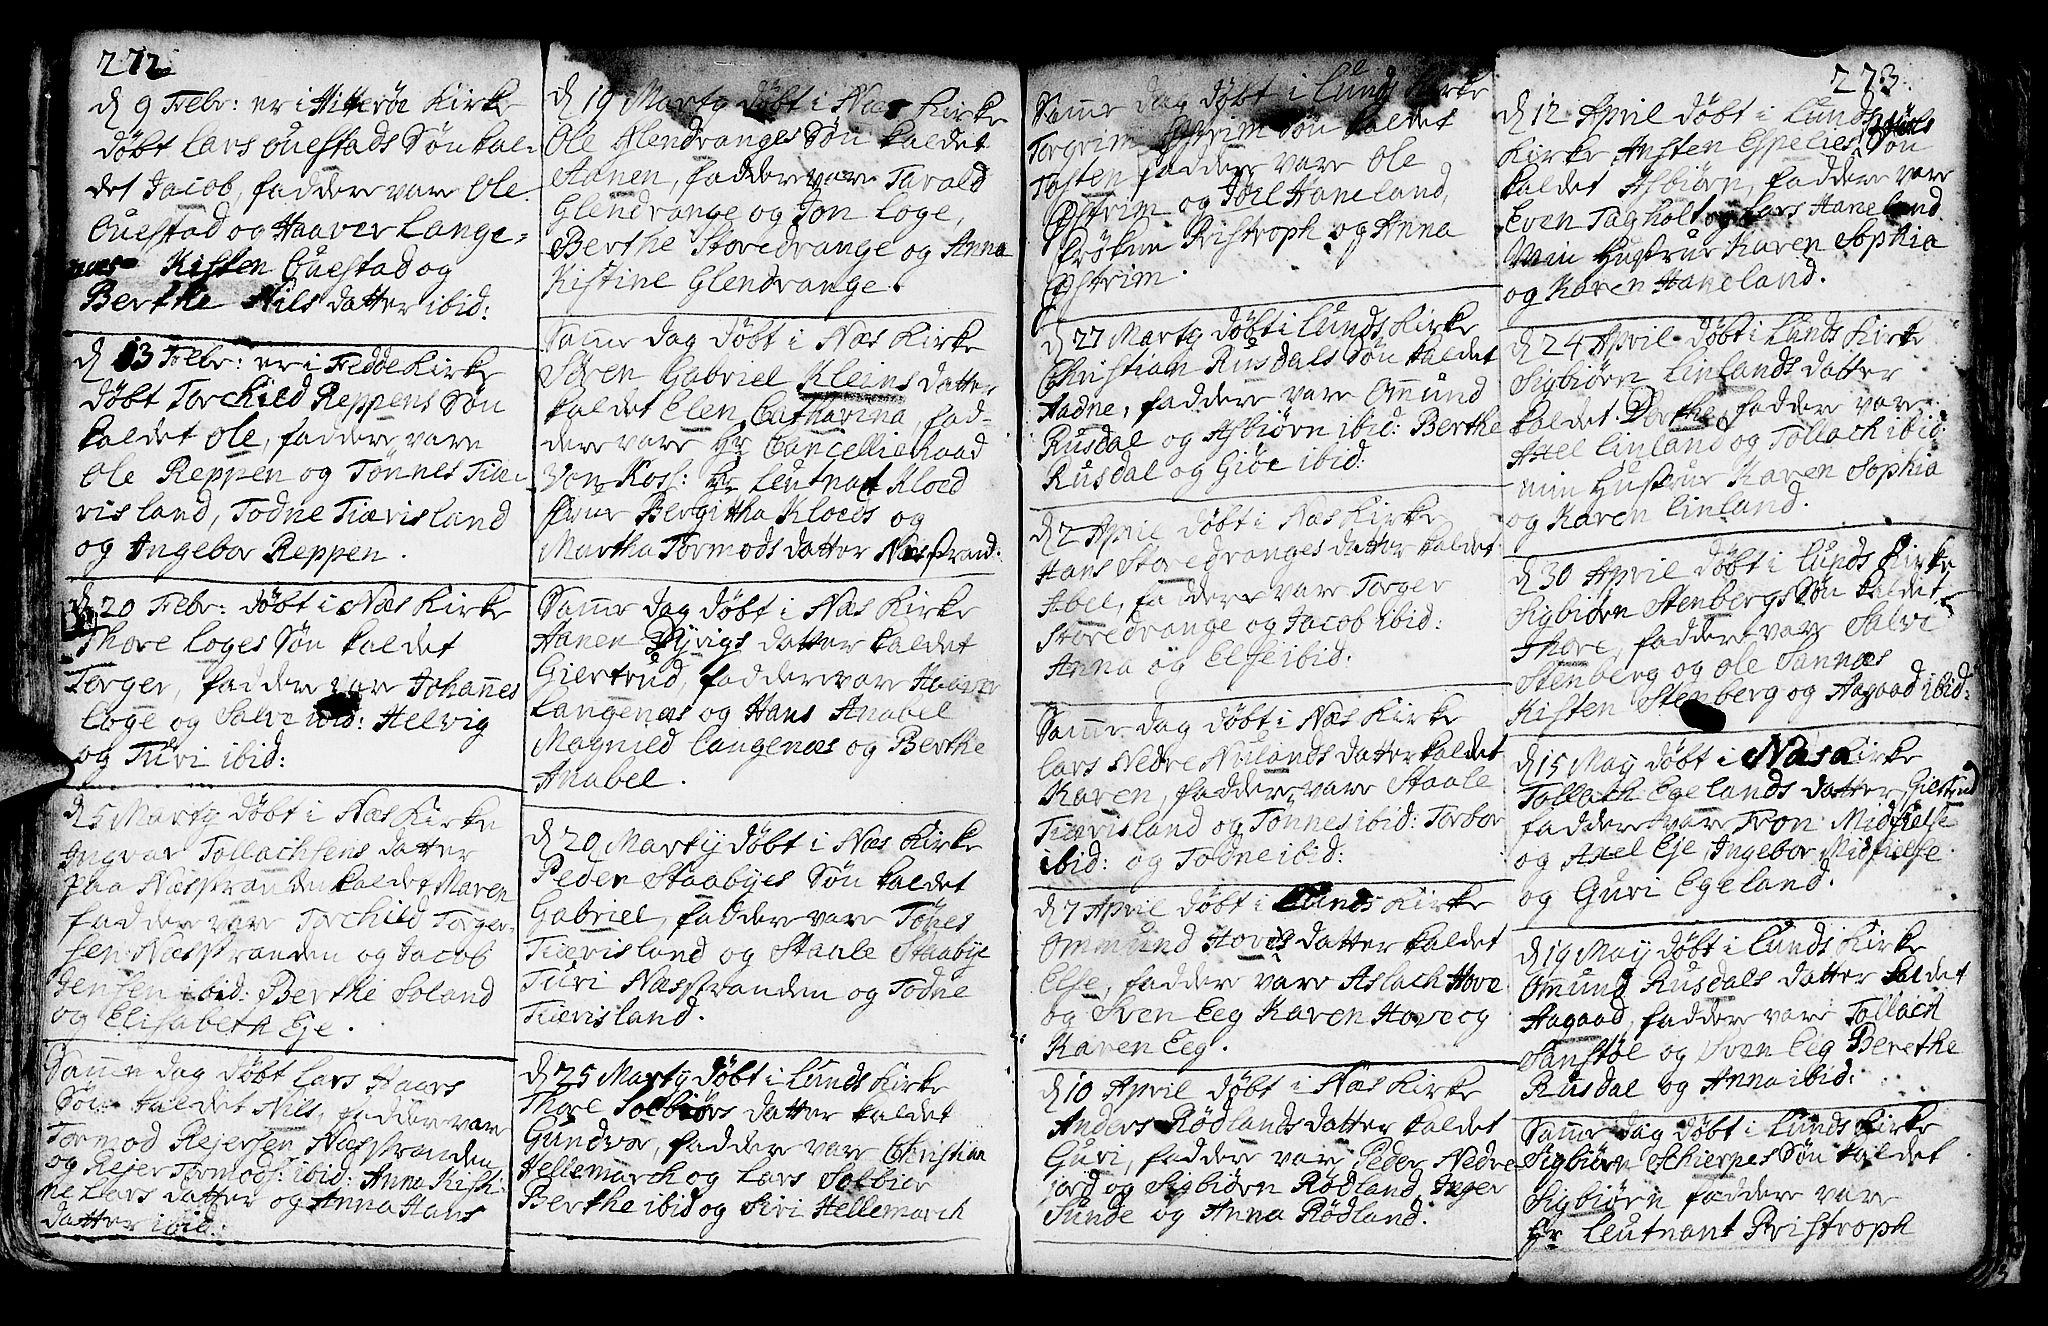 272
d 9 Febr: er i Hitterøe Kirke
døbt Lars Questads Søn kal-
det Jacob, faddere vare Ole
Questad og Haaver Lange-
næs Kisten Questad og
Berthe Nils datter ibid:
d 13 Febr: er i Fedde Kirke
døbt Torchild Reppens Søn
kaldet Ole, faddere vare
Ole Reppen og Tønnes Tiæ-
risland, Todne Tiærisland
og Ingebor Reppen.
d 20 Febr: døbt i Næs Kirke
Thore Loges Søn kaldet
Torger, faddere vare Johannes
Loge og Salve ibid: Helvig
og Turi ibid:
d 5 Marty døbt i Næs Kirke
Ingvar Tollachsens datter
paa Næsstranden kaldet Maren
faddere vare Torchild Torger-
sen Næsstranden og Jacob
Jensen ibid: Berthe Soland
og Elisabeth Eje.
Samme dag døbt Lars Haars
Søn kaldet Nils, faddere vare
Tormod Rejersen Næsstranden
og Rejer Tormods: ibid: Anne Kisti-
ne Lars datter og Anna Hans
datter ibid:
d 19 Marty døbt i Næs Kirke
Ole Glendranges Søn kaldet
Aanen, faddere vare Tarald
Glendrange og Jon Loge,
Berthe Storedrange og Anna
Kistine Glendrange.
Samme dag døbt i Næs Kirke
Søren Gabriel Kleins datter
kaldet Elen Catharina, fad-
dere vare Hr Cancellie Raad
Von Kos: Hr Leutnat Kloed
Frue Bergitha Kloeds og
Martha Tormods datter Næsstrand:
Samme dag døbt i Næs Kirke
Aanen Dyvigs datter kaldet
Giertrud, faddere vare Haaver
Langenæs og Hans Anabel
Magnild Langenæs og Berthe
Anabel.
d 20 Martij døbt i Næs Kirke
Peder Staabyes Søn kaldet
Gabriel, faddere vare Tønes
Tiærisland og Staale Staabye
Turi Næsstranden og Todne
Tiærisland.
d 25 Marty døbt i Lunds Kirke
Thore Solbiørs datter kaldet
Gundvor, faddere vare Christian
Hellemarch og Lars Solbiør
Berthe ibid og Siri Hellemarch
Samme dag døbt i Lunds Kirke
Torgrim Østrim Søn kaldet
Tosten faddere vare Ole
Østrim og Joel Haneland,
Frøken Pristroph og Anna
Østrim.
d 27 Marty døbt i Lunds Kirke
Christian Rusdals Søn kaldet
Aadne, faddere vare Omund
Rusdal og Asbiørn ibid: Berthe
Rusdal og Giøe ibid:
d 2 April døbt i Næs Kirke
Hans Storedranges datter kaldet
Abel, faddere vare Torger
Storedrange og Jacob ibid:
Anna og Else ibid:
Samme dag døbt i Næs Kirke
Lars Nedre Nulands datter kaldet
Karen, faddere vare Staale
Tiærisland og Tønnes ibid: Torbor
ibid: og Todne ibid:
d 7 April døbt i Lunds Kirke
Ommund Hoves datter kaldet
Else, faddere vare Aslach Hove
og Sven Eeg Karen Hove og
Karen Eeg.
d 10 April døbt i Næs Kirke
Anders Rødlands datter kaldet
Guri, faddere vare Peder Nedre
jord og Sigbiørn Rødland, Inger
Sunde og Anna Rødland.
273.
d 12 April døbt i Lunds
Kirke Ansten Espelies Søn
kaldet Asbiørn, faddere vare
Even Tagholt og Lars Haneland
Min Hustrue Karen Sophia
og Karen Haneland.
d 24 April døbt i Lunds Kirke
Sigbiørn Linlands datter
kaldet Dorthe, faddere vare
Axel Linland og Tollach ibid:
min Hustrue Karen Sophia
og Karen Linland.
d 30 April døbt i Lunds Kirke
Sigbiørn Stenbergs Søn kaldet
Thore, faddere var Salve
Stenberg og Ole Sannæs
Kisten Stenberg og Aagaad ibid:
d 15 May døbt i Næs Kirke
Tollach Egelands datter, Giertrud
faddere vare Tron Midfielse
og Axel Eje, Ingebor Midfielse
og Guri Egeland.
d 19 Maij døbt i Lunds Kirke
Omund Rusdals datter kaldet
Aagaad, faddere vare Tollach
Sanstøl og Sven Eeg Berethe
Rusdal og Anna ibid:
Samme dag døbt i Lunds Kirke
Sigbiørn Schierpes Søn kaldet
Sigbiørn faddere vare
Hr Leutnant Pristroph